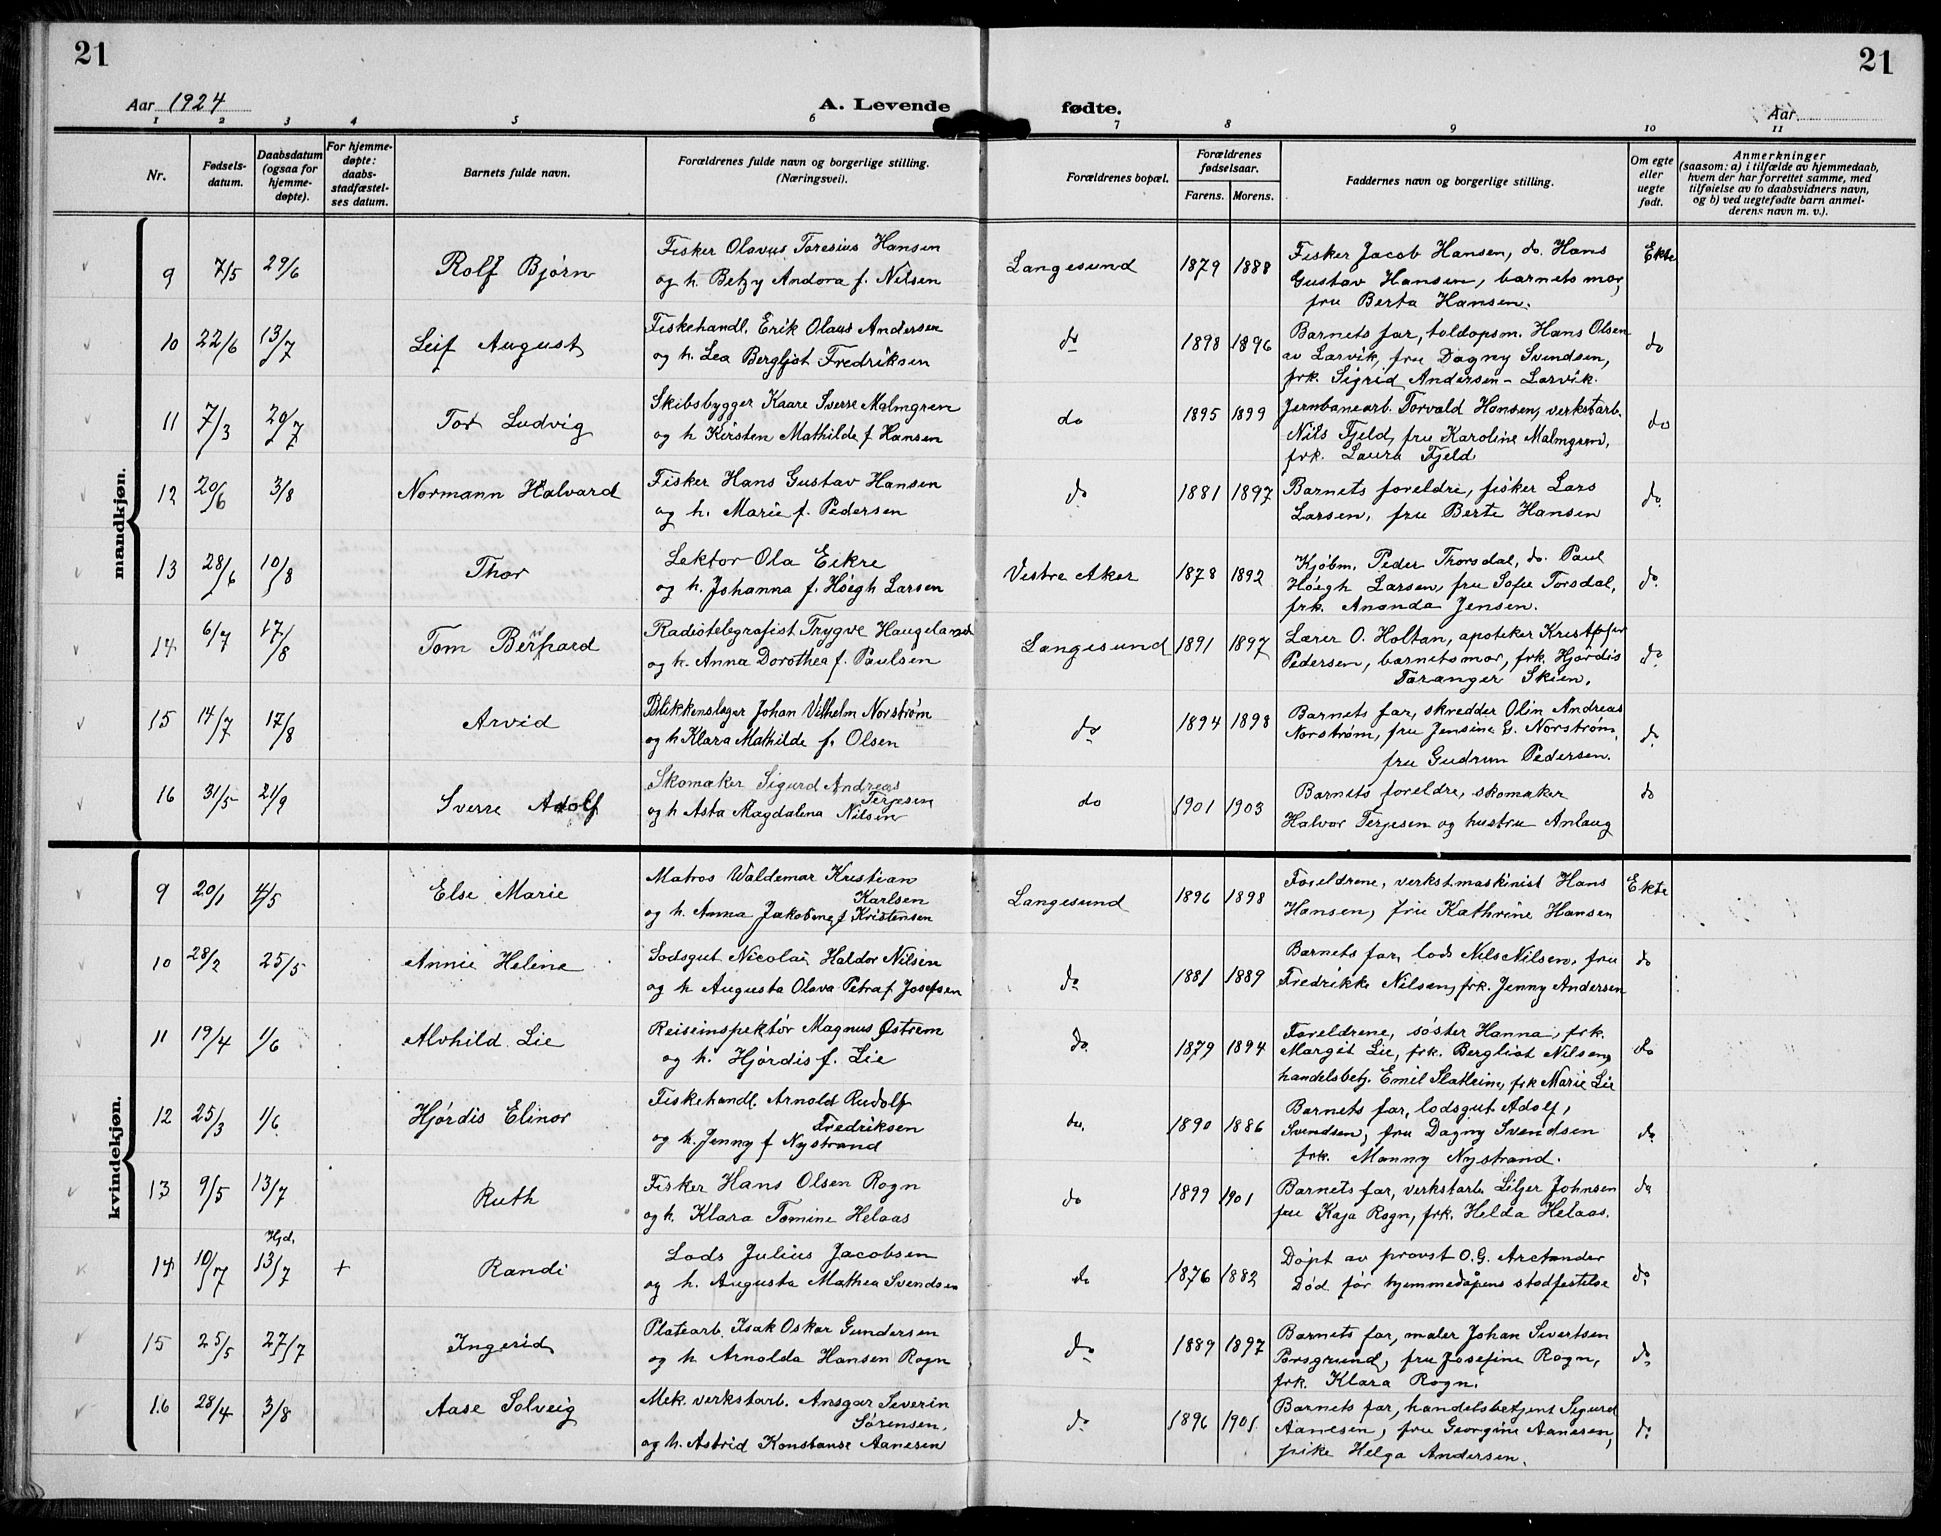 21
21
Aar 1924
A. Levende
fødte.
Aar
1 2 3 4 5 6 7 8 9 10 11
Nr.
Fødsels-
datum.
Daabsdatum
(ogsaa for
hjemme-
døpte).
For hjemme-
døpte:
daabs-
stadfæstel-
ses datum.
Barnets fulde navn.
Forældrenes fulde navn og borgerlige stilling.
(Næringsvei).
Forældrenes bopæl.
Forældrenes
fødselsaar.
Farens. Morens.
Faddernes navn og borgerlige stilling.
Om egte
eller
uegte
født.
Anmerkninger
(saasom: a) i tilfælde av hjemmedaab,
hvem der har forrettet samme, med
tilføielse av to daabsvidners navn,
og b) ved uegtefødte barn anmel-
derens navn m. v.).
mandkjøn.
9 7/5 29/6 Rolf Bjørn
Fisker Olavus Toresius Hansen
og h. Betzy Andora f. Nilsen
Langesund 1879 1888
Fisker Jacob Hansen, do. Hans
Gustav Hansen, barnets mor,
fru Berta Hansen.
Ekte
10 22/6 13/7 Leif August
Fiskehandl. Erik Olaus Andersen
og h. Lea Bergljot Fredriksen
do 1898 1896
Barnets far, toldopsm. Hans Olsen
av Larvik, fru Dagny Svendsen,
frk. Sigrid Andersen - Larvik.
do
11 7/3 20/7 Tor Ludvig
Skibsbygger Kaare Sverre Malmgren
og h Kirsten Mathilde f. Hansen
do 1895 1899
Jernbanearb. Torvald Hansen, verkstarb.
Nils Fjeld, fru Karoline Malmgren,
frk. Laura Fjeld
do
12 20/6 3/8 Normann Halvard
Fisker Hans Gustav Hansen
og h. Marie f. Pedersen
do 1881 1897
Barnets foreldre, fisker Lars
Larsen, fru Berte Hansen
do.
13 28/6 10/8 Thor
Lektor Ola Eikre
og h. Johanna f. Høegh Larsen
Vestre Aker 1878 1892
Kjøbm. Peder Thorsdal, do. Paul
Høegh Larsen, fru Sofie Torsdal,
frk. Ananda Jensen.
do.
14 6/7 17/8 Tom Bernhard
Radiotelegrafist Trygve Haugeland
og h. Anna Dorothea f. Paulsen
Langesund 1891 1897
Lærer O. Holtan, apoteker Kristofer
Pedersen, barnets mor, frk. Hjørdis
Taranger Skien.
do.
15 14/7 17/8 Arvid
Blikkenslager Johan Vilhelm Norstrøm
og h Klara Mathilde f. Olsen
do 1894 1898
Barnets far, skredder Olin Andreas
Norstrøm, fru Jensine G. Norstrøm,
fru Gudrun Pedersen.
do.
16 31/5 21/9 Sverre Adolf
Skomaker Sigurd Andreas
Terjesen
og h Asta Magdalena Nilsen
do 1901 1903
Barnets foreldre, skomaker
Halvor Terjesen og hustru Anlaug
do
kvindekjøn.
9 20/1 4/5 Else Marie
Matros Waldemar Kristian
Karlsen
og h. Anna Jakobine f Kristensen
Langesund 1896 1898
Foreldrene, verkstmaskinist Hans
Hansen, fru Kathrine Hansen
Ekte
10 28/2 25/5 Annie Helene
Lodsgut Nicolai Haldor Nilsen
og h Augusta Olava Petra f. Josefsen
do 1881 1889
Barnets far, lods Nils Nilsen, fru
Fredrikke Nilsen, frk. Jenny Andersen
do
11 19/4 1/6 Alvhild Lie
Reiseinspektør Magnus Østrem
og h. Hjørdis f. Lie
do. 1879 1894
Foreldrene, søster Hanna, frk.
Margit Lie, frk. Bergliot Nilsen,
handelsbetj. Emil Slatleim, frk Marie Lie
do
12 25/3 1/6 Hjørdis Elinor
Fiskehandl. Arnold Rudolf
Fredriksen
og h. Jenny f Nystrand
do. 1890 1886
Barnets far, lodsgut Adolf
Svendsen, fru Dagny Svendsen
frk. Manny Nystrand.
do
13 9/5 13/7 Ruth
Fisker Hans Olsen Rogn
og h. Klara Tomine Helaas
do 1899 1901
Barnets far, verkstarb. Liljer Johnsen
fru Kaja Rogn, frk. Helda Helaas.
do
Hjd.
14 10/7 13/7 + Randi
Lods Julius Jacobsen
og h. Augusta Mathea Svendsen
do 1876 1882
Døpt av provst O. G. Arctander
Død før hjemmedåpens stadfestelse
do.
15 25/5 27/7 Ingerid
Platearb. Isak Oskar Gundersen
og h Arnolda Hansen Rogn
do 1889 1897
Barnets far, maler Johan Sivertsen
Porsgrund, fru Josefine Rogn,
frk. Klara Rogn.
do.
16 28/4 3/8 Aase Solveig
Mek. verkstarb. Ansgar Severin
Sørensen.
og h. Astrid Konstanse Aanesen
do 1896 1901
Barnets far, handelsbetjent Sigurd
Aanesen, fru Georgine Aanesen,
pike Helga Andersen.
do.